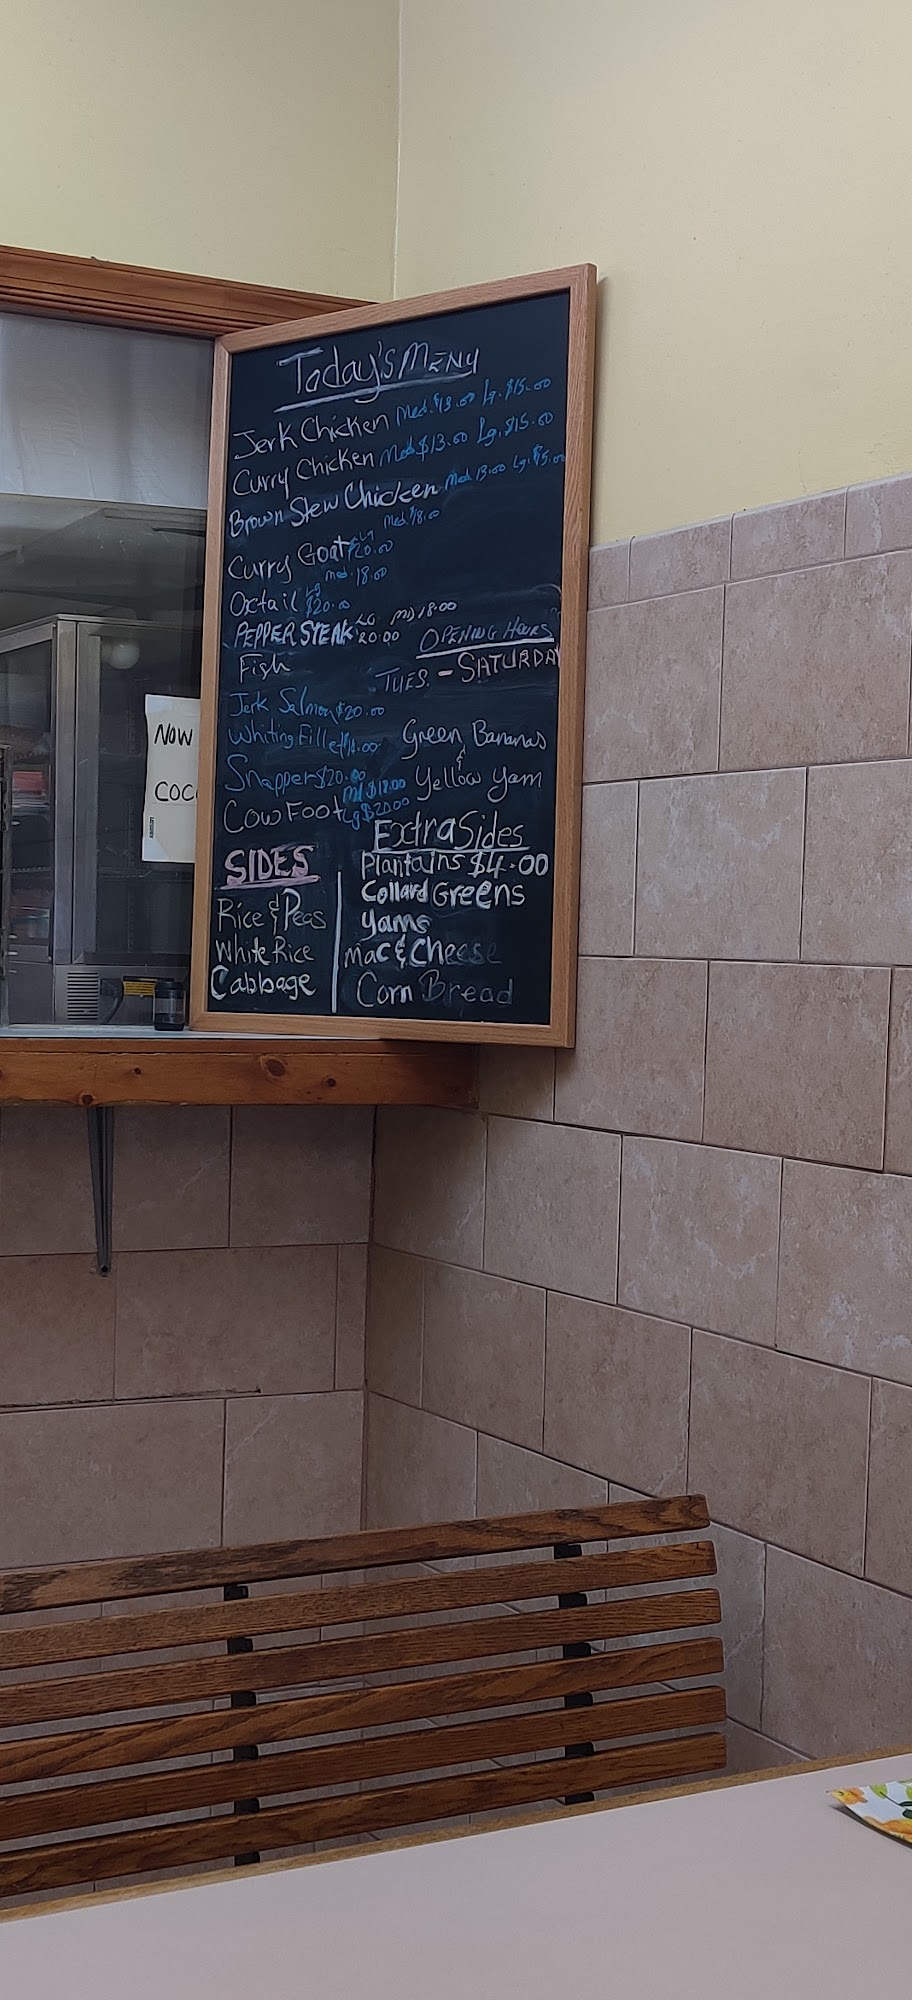 Today's MENU
Jerk Chicken Med. $13.00 Lg. $15.00
Curry Chicken Med $13.00 Lg. $15.00
Brown Stew Chicken Med 13.00 Lg. $15.00
Med. $18.00
Curry Goat LG $20.00
med. 18.00
Oxtail Lg $20.00
PEPPER STEAK LG 20.00 MD 18.00
OPENING HOURS
TUES. - SATURDAY
Fish
Jerk Salmon $20.00
Whiting Fillet $14.00
Snapper $20.00
Cow Foot Md $18.00 Lg $20.00
Green Bananas
&
Yellow Yam
SIDES
Rice & Peas
White Rice
Cabbage
Extra Sides
Plantains $4.00
Collard Greens
Yams
Mac & Cheese
Corn Bread
NOW
COC